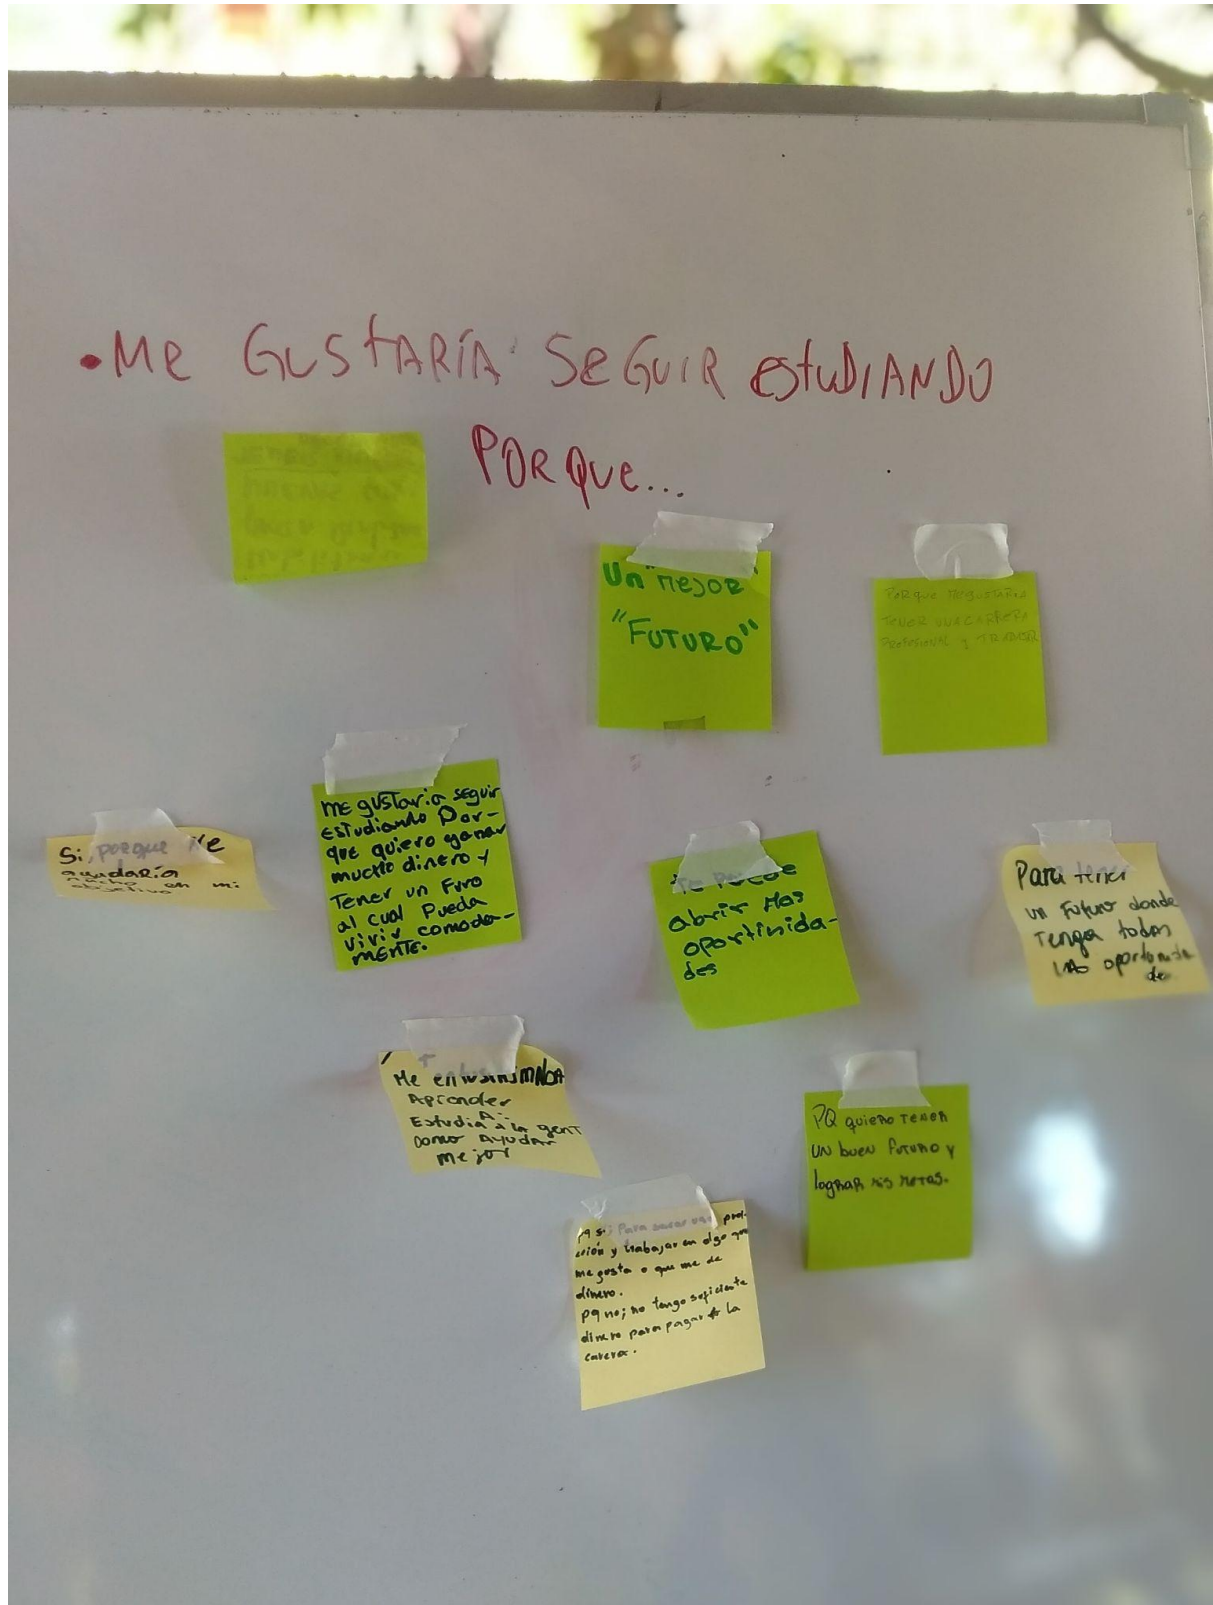 • Me GUSTARÍA SEGUIR EStUDIANDO
PORQUE...
Un "MEJOR"
"FUTURO"
PORQUE ME GUSTARIA
TENER UNA CARRERA
PROFESIONAL y
Si, porque Me
ayudaría
mucho en mi
objetivo
ME gustaria seguir
ESTUDIANDO Por-
que quiero ganar
mucho dinero y
Tener un
al cual Pueda
vivir comoda-
MENTE.
Te Puede
abrir Mas
oportinida-
des
Para tener
un Futuro donde
Tenga todas
las
Me
Aprender
Estudia a la gent
como AYUDAR
mejor
PQ quiero TENER
UN buen FUTURO y
lograr MIS METAS.
pq si; Para sacar una
y trabajar en algo que
me gusta o que me de
dinero.
pq no; no tengo suficiente
dinero para pagar la